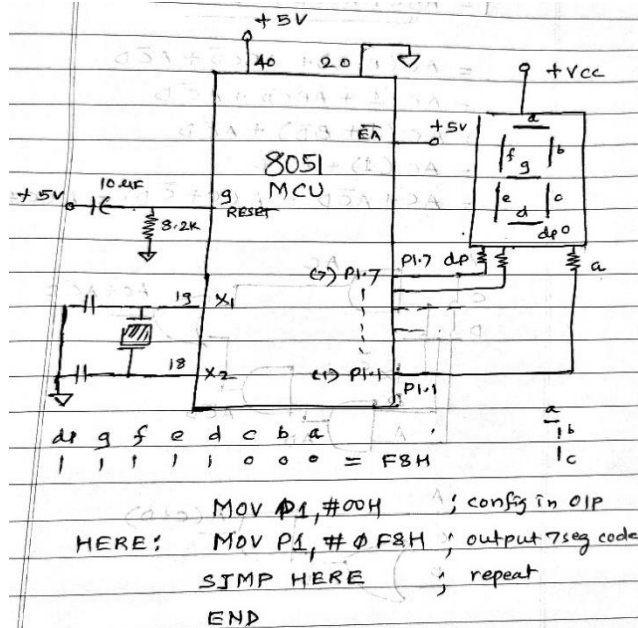 +5V
40 20
+Vcc
EA +5V
a
f b
g
e c
d
dp
8051
MCU
10µF
+5V
9
RESET
8.2K
(7) P1.7 P1.7 dp a
19 X1
18 X2
(1) P1.1 P1.1
a
b
c
dp g f e d c b a
1 1 1 1 1 0 0 0 = F8H
MOV P1, #00H ; config in O/P
HERE: MOV P1, #0F8H ; output 7seg code
SJMP HERE ; repeat
END